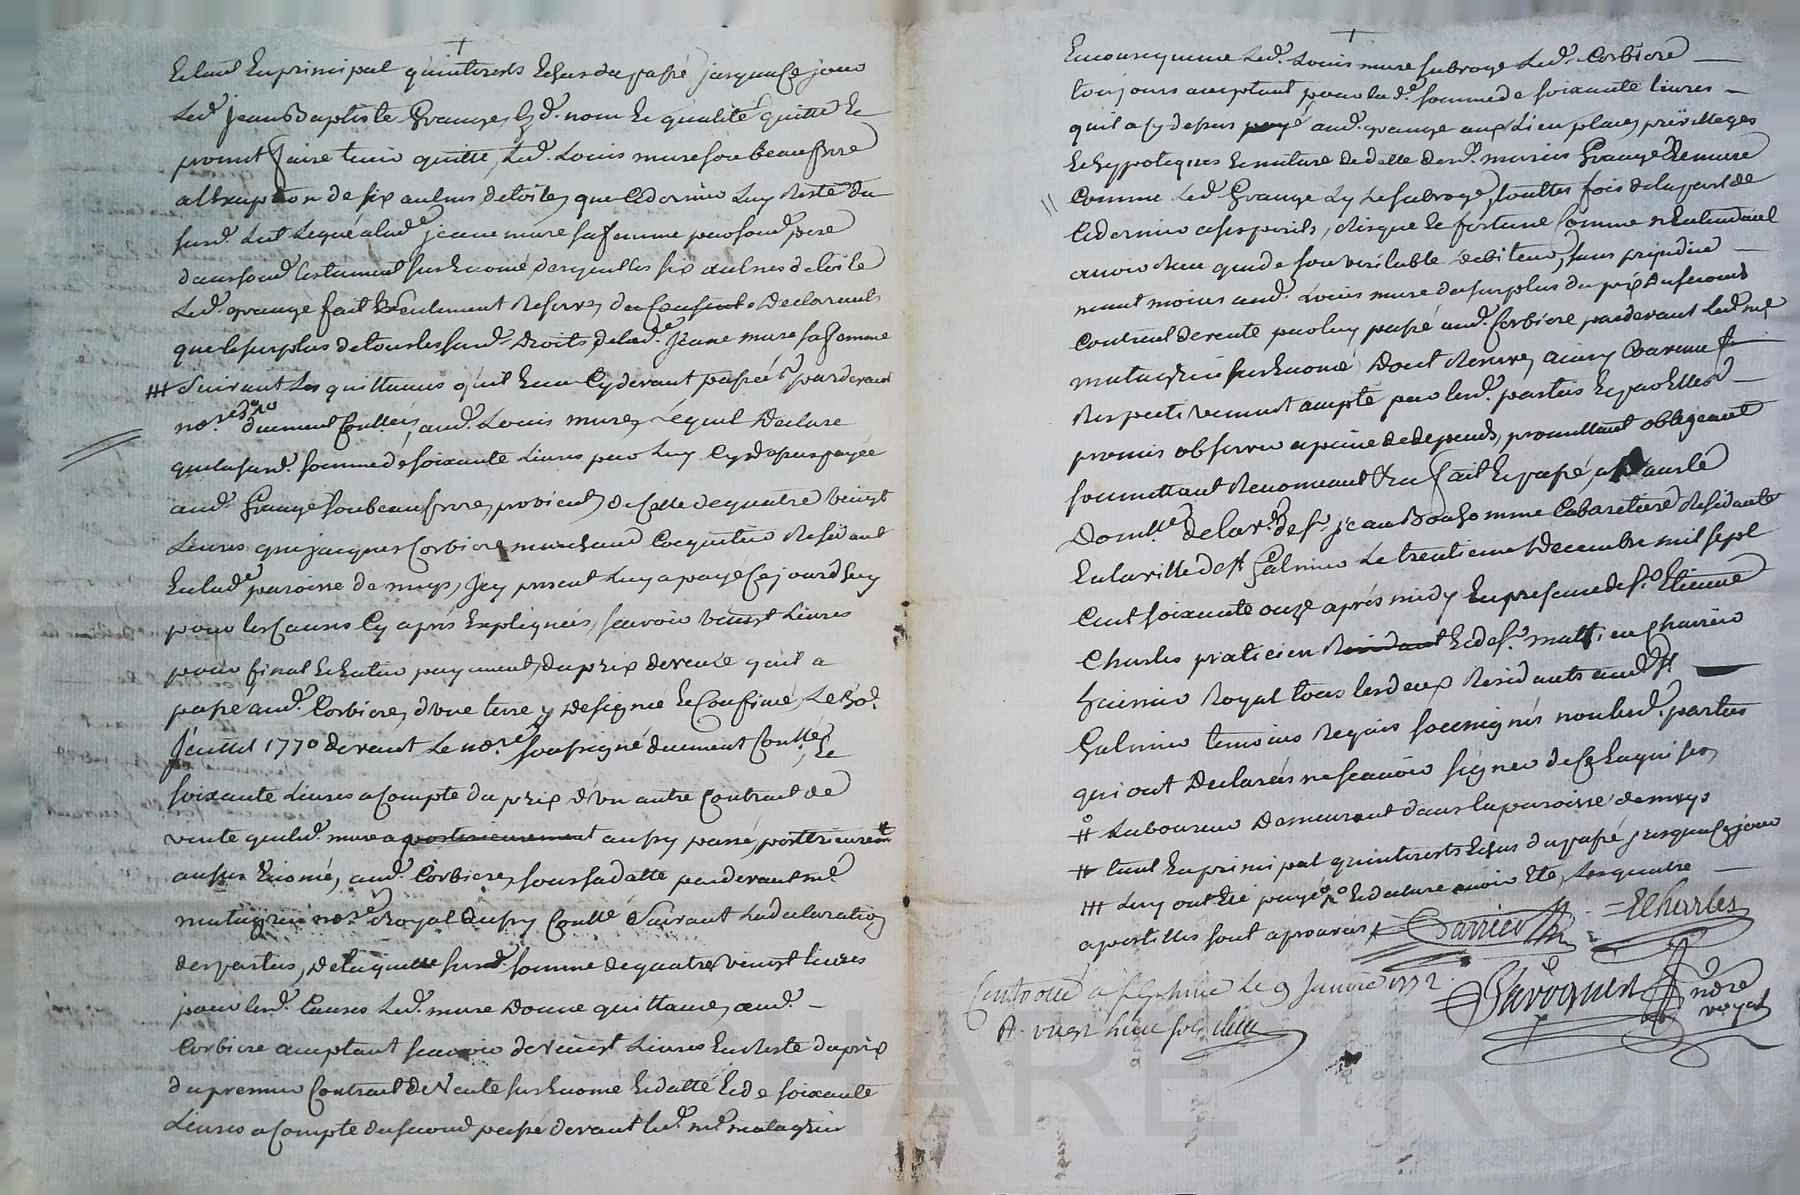 Et tant En principal qu'interests Echus du passé jusqua ce jour
Led. jean Baptiste Grange, Esd. nom Et qualité quitte Et
promet faire tenir quitte, Led. Louis mure son beaufrere
a L'exception de six aulnes de toiles que Ce dernier Luy Reste du
surd. Lut Legué a lad.e jeane mure sa femme par soud. pere
dans soud. testament sus Enomé, desquelles six aulnes de toile
Led. grange fait Reserve, Declarant
que le surplus de tous les surd. Droits, de lad.e jeane mure sa femme
Suivant Les quittances qu'il En a Cy devant passées pardevant
no.re duement Contt.ées, aud. Louis mure, Lequel Declare
que la surd. somme de soixante Livres par Luy Cy dessus payée
aud. Grange son beaufrere, provient, de Celle de quatre vingt
Livres que jacques Corbiere marchand Coquetier Residant
En lad.e paroisse de mays, Icy present Luy a payé Ce jourd'huy
pour les Causes Cy aprés Expliquées, scavoir vingt Livres
pour final Et Entier payement, du prix de vente qu'il a
passé aud. Corbiere, d'une terre y Designée Et Confinée, Le
jeuillet 1770 devant Le no.re soussigné duement Contt.ée, Et
soixante Livres a Compte du prix d'un autre Contrat de
vente que led. mure a posterieurement aussy passé, posterieurem.t
au sus Enomé, aud. Corbiere, sous sa datte pardevant m.e
matagrin no.re Royal aussy Contt.é Suivant La declaration
des parties, de laquelle surd. somme de quatre vingt Livres
pour lesd. Causes Led. mure Donne quittance, aud.
Corbiere acceptant scavoir de vingt Livres En reste du prix
du premier Contrat de Vente sus Enomé Et datté Et de soixante
Livres a Compte du second passé devant led. m.e matagrin
En consequence Led. Louis mure subroge Led. Corbiere
toujours acceptant pour lad.e somme de soixante Livres
qu'il a cy dessus payé aud. grange aux Lieu, place, privilleges
Et hypoteques Et nature de dette desd. mariés Grange Et mure
Comme Led. Grange L'y Le subroge, toutes fois de la part de
Ce dernier a ses perils, Risque Et fortune Comme n'Entendant
avoir Reçu que de son veritable Debiteur, sans prejudice
neant moins aud. Louis mure du surplus du prix du second
Contrat de vente par luy passé aud. Corbiere pardevant Led. m.e
matagrin sus Enomé, Dont Reserve, ainsy Convenu Et
Respectivement accepté par lesd. parties Et par Elles
promis observer a peine de depends, promettant obligeant
soumettant Renonceant &c fait Et passé, dans le
Dom.lle de la v.e de s.r jean Bonhomme Cabaretiere Residante
En la ville de st Galmier Le trentieme Decembre mil sept
Cent soixante onze aprés midy En presence de s.r Etienne
Charles praticien Residant Et de s.r mathieu Charrein
huissier Royal tous les deux Residants aud. st
Galmier temoins Requis soussignés non lesd. parties
qui ont Declarés ne scavoir signer de Ce Enquises,
# Laboureur Demeurant dans la paroisse de mays
# tant En principal qu'interests Echus du passé jusqua Ce jour
### Luy ont Eté payé Et declare avoir Eté, Les quatre
apostilles sont aprouvées
E Charles
no.re royal
Controllé à st Galmier Le 9 Janvier 1772